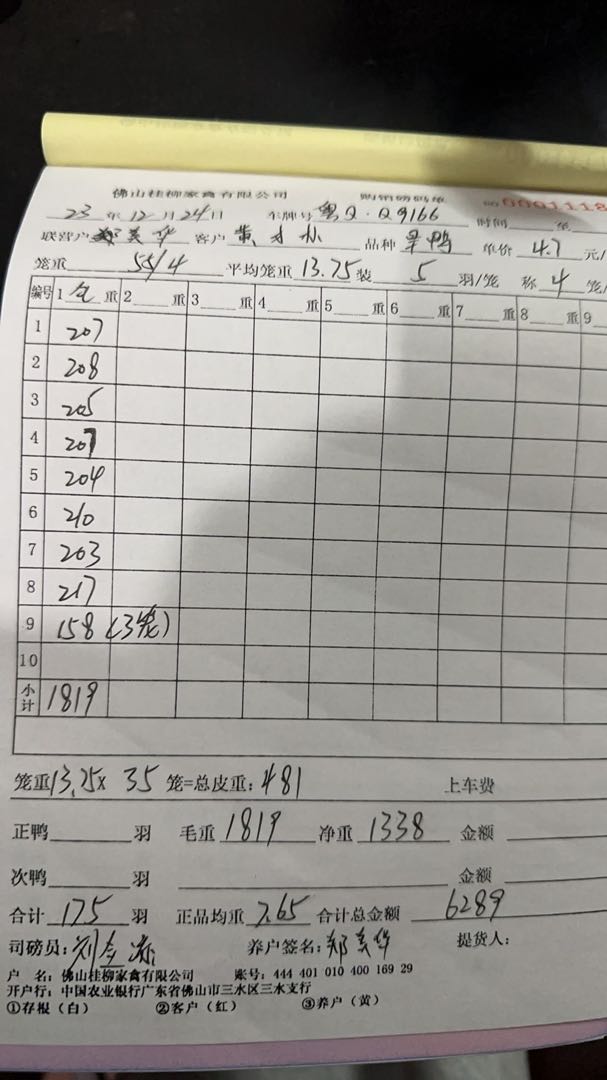 佛山桂柳家禽有限公司 购销磅码单 NO 0001118
23 年 12 月 24 日 车牌号 粤Q·Q9166 时间 至
联营户 郑美华 客户 黄 品种 旱鸭 单价 4.7 元/
笼重 55/4 平均笼重 13.75 装 5 羽/笼 称 4 笼/
编号 1 毛 重 2 重 3 重 4 重 5 重 6 重 7 重 8 重 9
1 207
2 208
3 205
4 207
5 204
6 210
7 203
8 217
9 158 (3笼)
10
小计 1819
笼重 13.75 x 35 笼=总皮重: 481 上车费
正鸭 羽 毛重 1819 净重 1338 金额
次鸭 羽 金额
合计 175 羽 正品均重 7.65 合计总金额 6289
司磅员: 刘 养户签名: 郑美华 提货人:
户 名: 佛山桂柳家禽有限公司 账号: 444 401 010 400 169 29
开户行: 中国农业银行广东省佛山市三水区三水支行
①存根(白) ②客户(红) ③养户(黄)